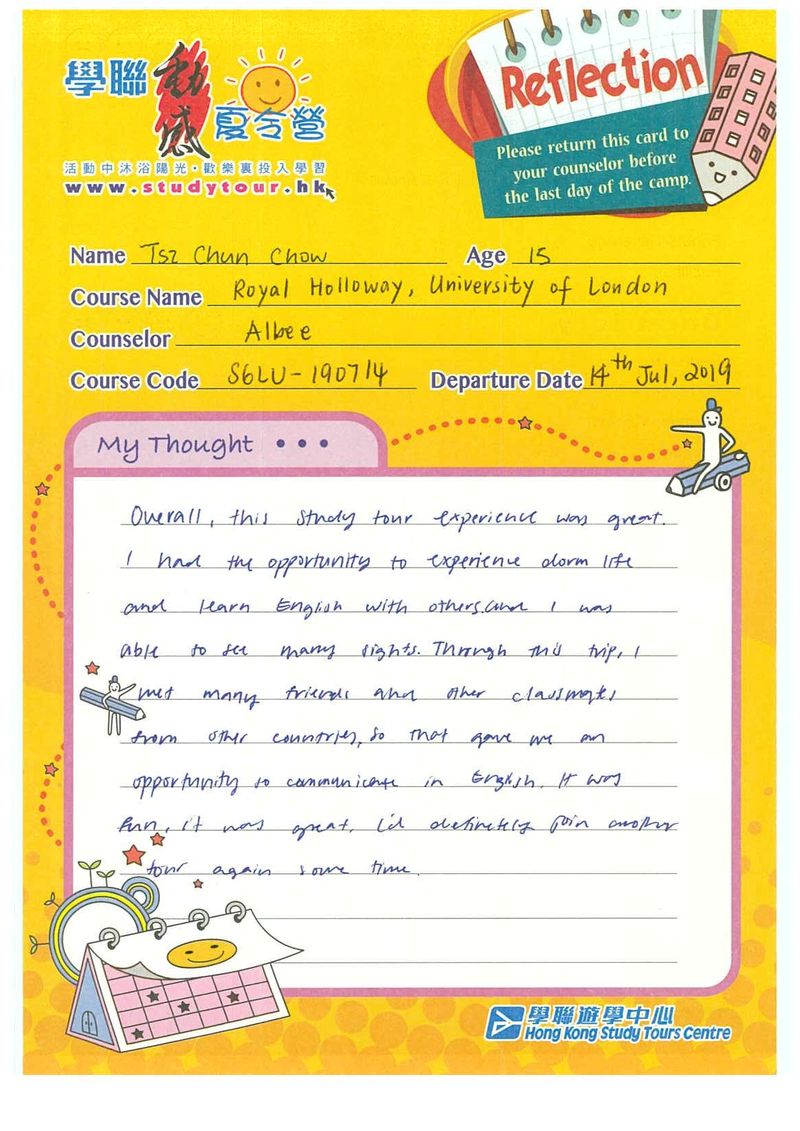 學聯 動感 夏令營
活動中沐浴陽光・歡樂裏投入學習
www.studytour.hk
Reflection
Please return this card to
your counselor before
the last day of the camp.
Name Tsz Chun Chow Age 15
Course Name Royal Holloway, University of London
Counselor Albee
Course Code S6LU-190714 Departure Date 14th Jul, 2019
My Thought •••
Overall, this study tour experience was great.
I had the opportunity to experience dorm life
and learn English with others. and I was
able to see many sights. Through this trip, I
met many friends and other classmates
from other countries, so that gave me an
opportunity to communicate in English. It was
fun, it was great. I'd definitely join another
tour again some time.
學聯遊學中心
Hong Kong Study Tours Centre